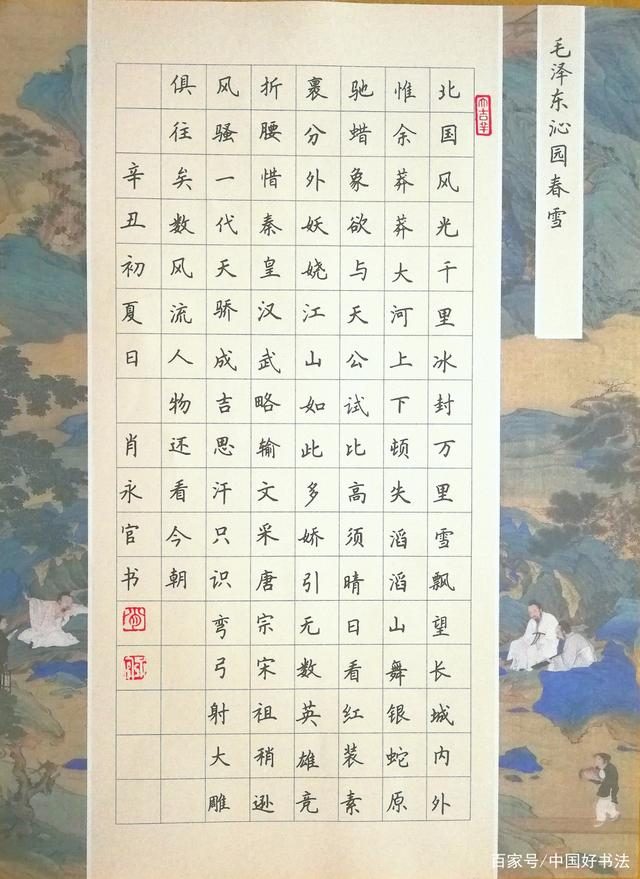 毛泽东沁园春雪
大吉羊
北国风光千里冰封万里雪飘望长城内外
惟余莽莽大河上下顿失滔滔山舞银蛇原
驰蜡象欲与天公试比高须晴日看红装素
裹分外妖娆江山如此多娇引无数英雄竞
折腰惜秦皇汉武略输文采唐宗宋祖稍逊
风骚一代天骄成吉思汗只识弯弓射大雕
俱往矣数风流人物还看今朝
辛丑初夏日 肖永官书
百家号/中国好书法